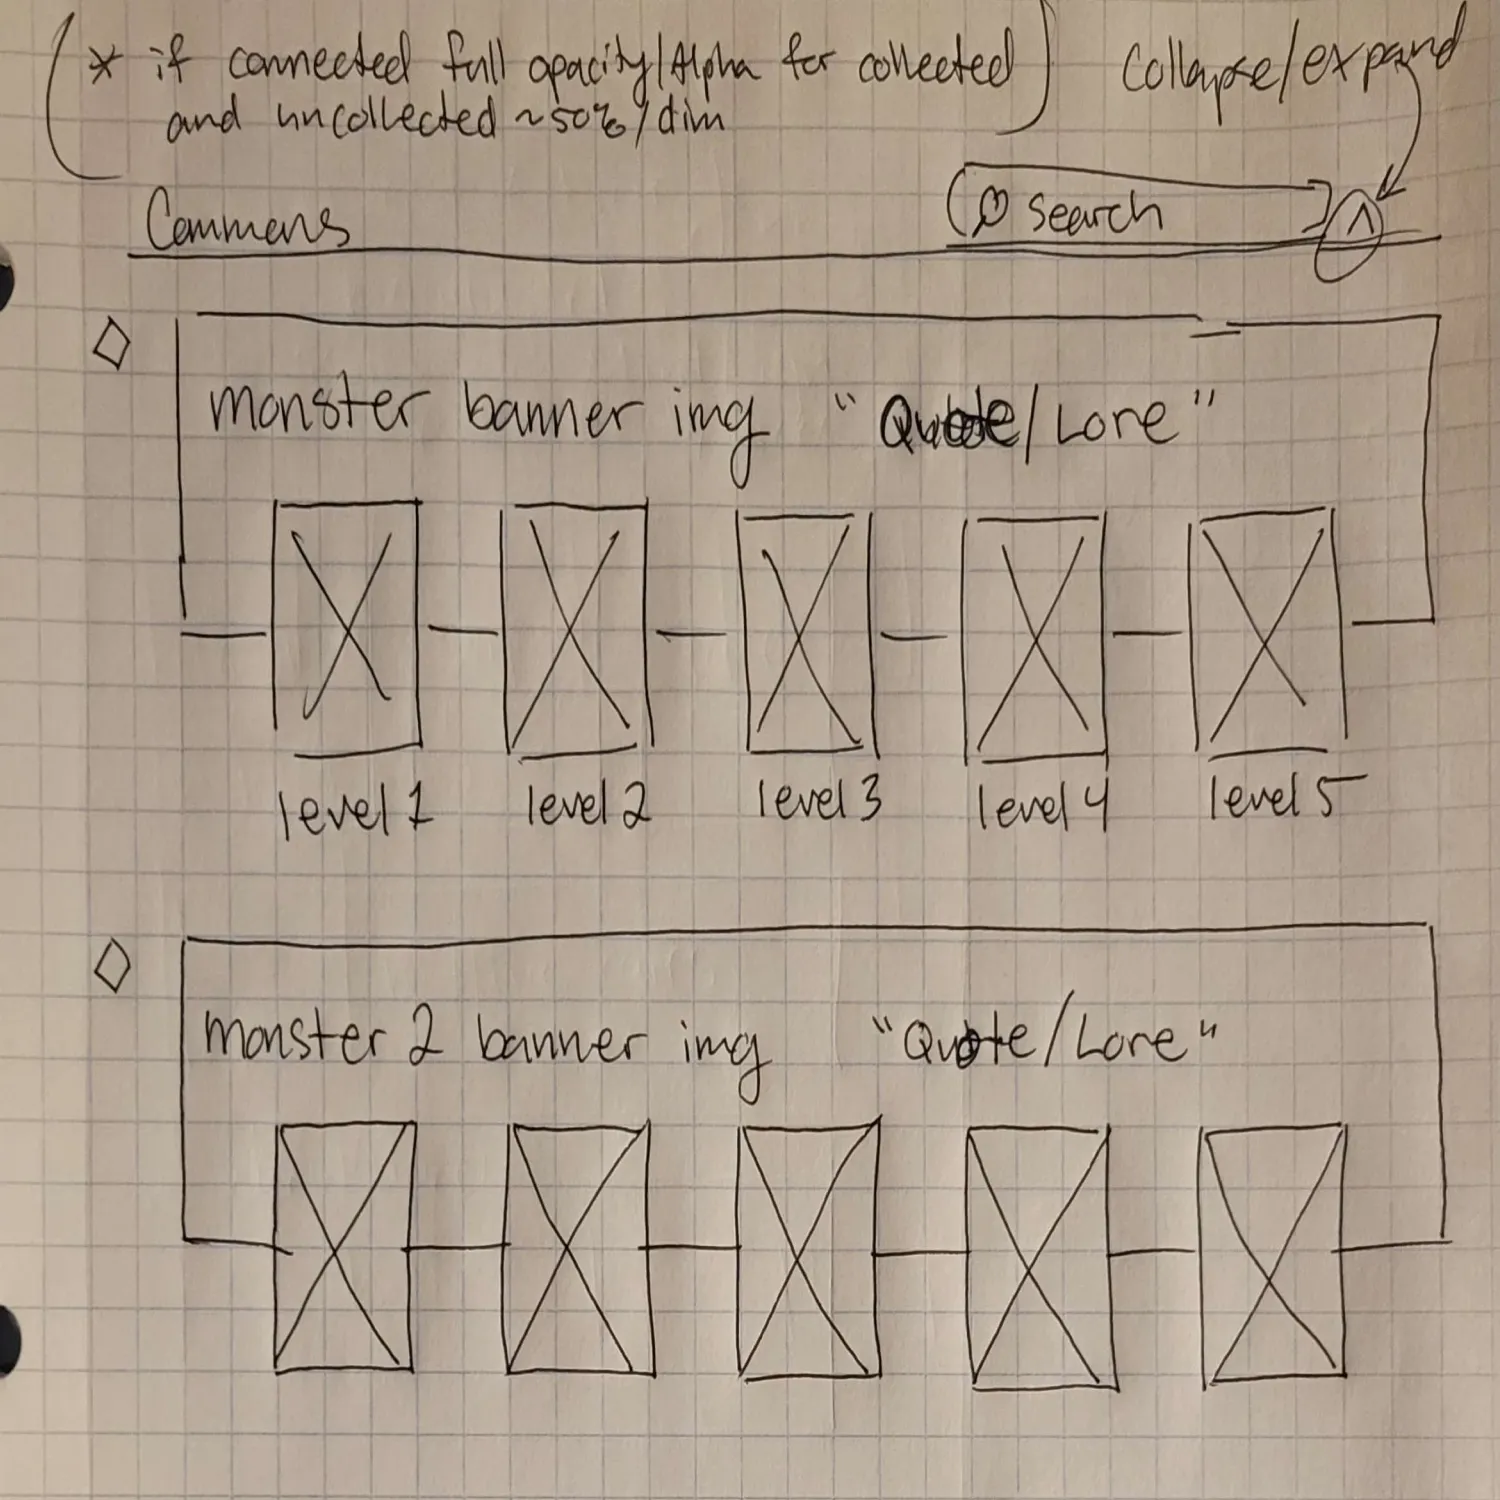 * if connected full opacity/Alpha for collected
and uncollected ~50%/dim
Collapse/expand
Commons
search
monster banner img "Quote/Lore"
level 1 level 2 level 3 level 4 level 5
monster 2 banner img "Quote/Lore"